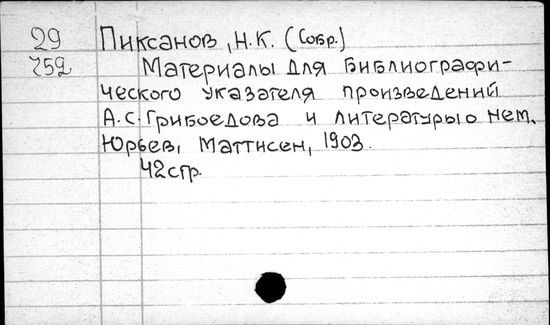 29 Пиксанов, Н.К. (Собр.)
752 Материалы для библиографи-
ческого указателя произведений
А.С. Грибоедова и литературы о нем.
Юрьев, Маттисен, 1903.
42 стр.